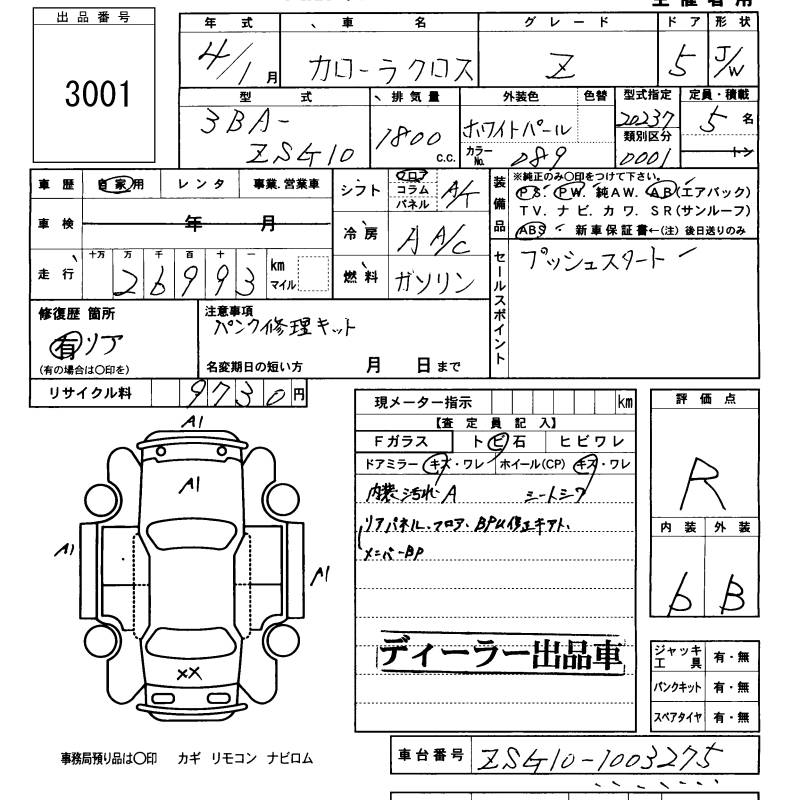 出品番号
3001
年式 車名 グレード ドア 形状
4/1月 カローラクロス Z 5 J/W
型式 排気量 外装色 色替 型式指定 定員・積載
3BA-
ZSG10
1800 C.C.
ホワイトパール
カラーNo. 089
20237
類別区分
0001
5名
トン
車歴 自家用 レンタ 事業.営業車
シフト フロア コラム パネル A/T
装備品
※純正のみ○印をつけて下さい。
PS. PW. 純AW. AB(エアバック)
TV. ナビ. カワ. SR(サンルーフ)
ABS 新車保証書←(注) 後日送りのみ
車検 年 月
冷房 A A/C
走行 十万 万 千 百 十 一
26993 km マイル
燃料 ガソリン
セールスポイント
プッシュスタート
修復歴 箇所
有 リア
(有の場合は○印を)
注意事項
パンク修理キット
名変期日の短い方 月 日まで
リサイクル料 9730円
現メーター指示 km
【査定員記入】
Fガラス トビ石 ヒビワレ
ドアミラー キズ・ワレ ホイール(CP) キズ・ワレ
内装汚れA シートシワ
リアパネル、フロア、
メンバーBP
ディーラー出品車
評価点
R
内装 外装
b B
ジャッキ工具 有・無
パンクキット 有・無
スペアタイヤ 有・無
A1
A1
A1
A1
XX
事務局預り品は○印 カギ リモコン ナビロム
車台番号 ZSG10-1003275